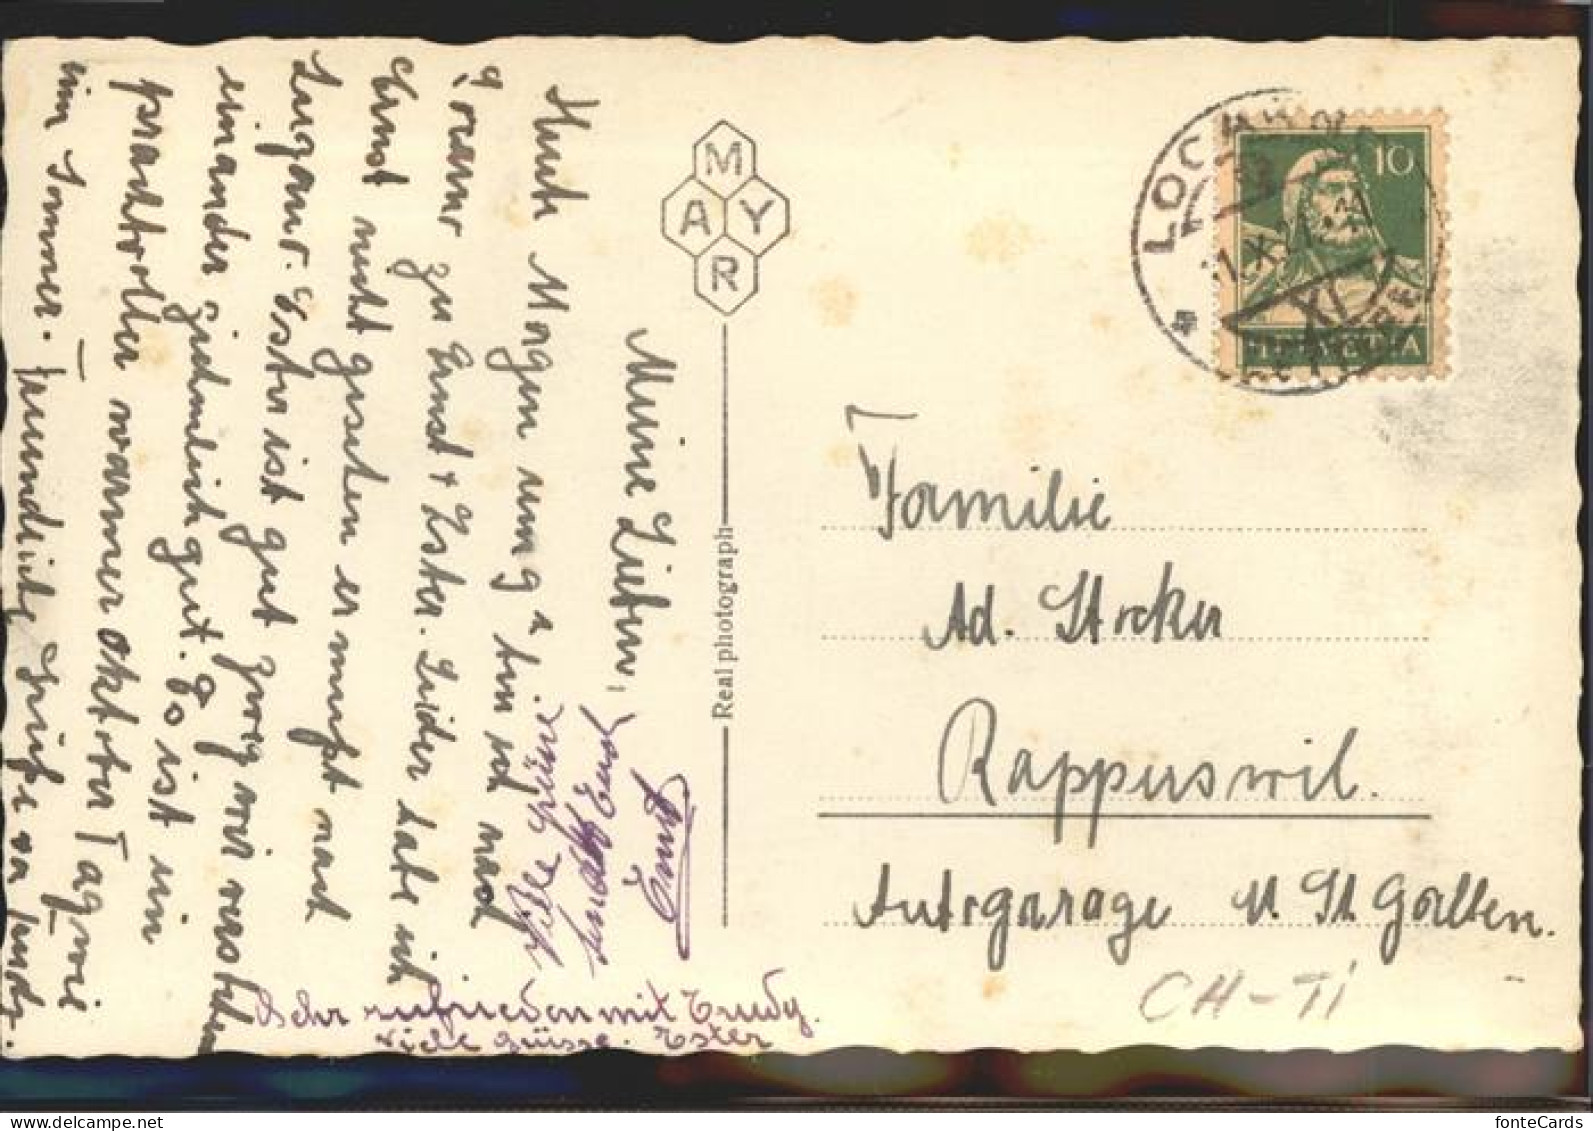 Meine Lieben!
Heute Morgen um 9 h bin ich nach
Locarno zu Ernst & Ester. Leider habe ich
Ernst nicht gesehen er musst nach
Lugano. Ester ist gut zweg wir verstehen
einander ziemlich gut. Es ist ein
prachtvoller warmer Oktober Tag wie
im Sommer. Freundliche Grüsse von
Viele Grüsse
sendet Euch
Ernst
Sehr zufrieden mit Trudy.
Viele Grüsse. Ester
MAYR
Real photograph
LOCARNO
1.X.
XI
10
HELVETIA
Familie
Ad. Stocker
Rapperswil.
Autogarage Kt. St. Gallen.
CH-TI
fonteCards